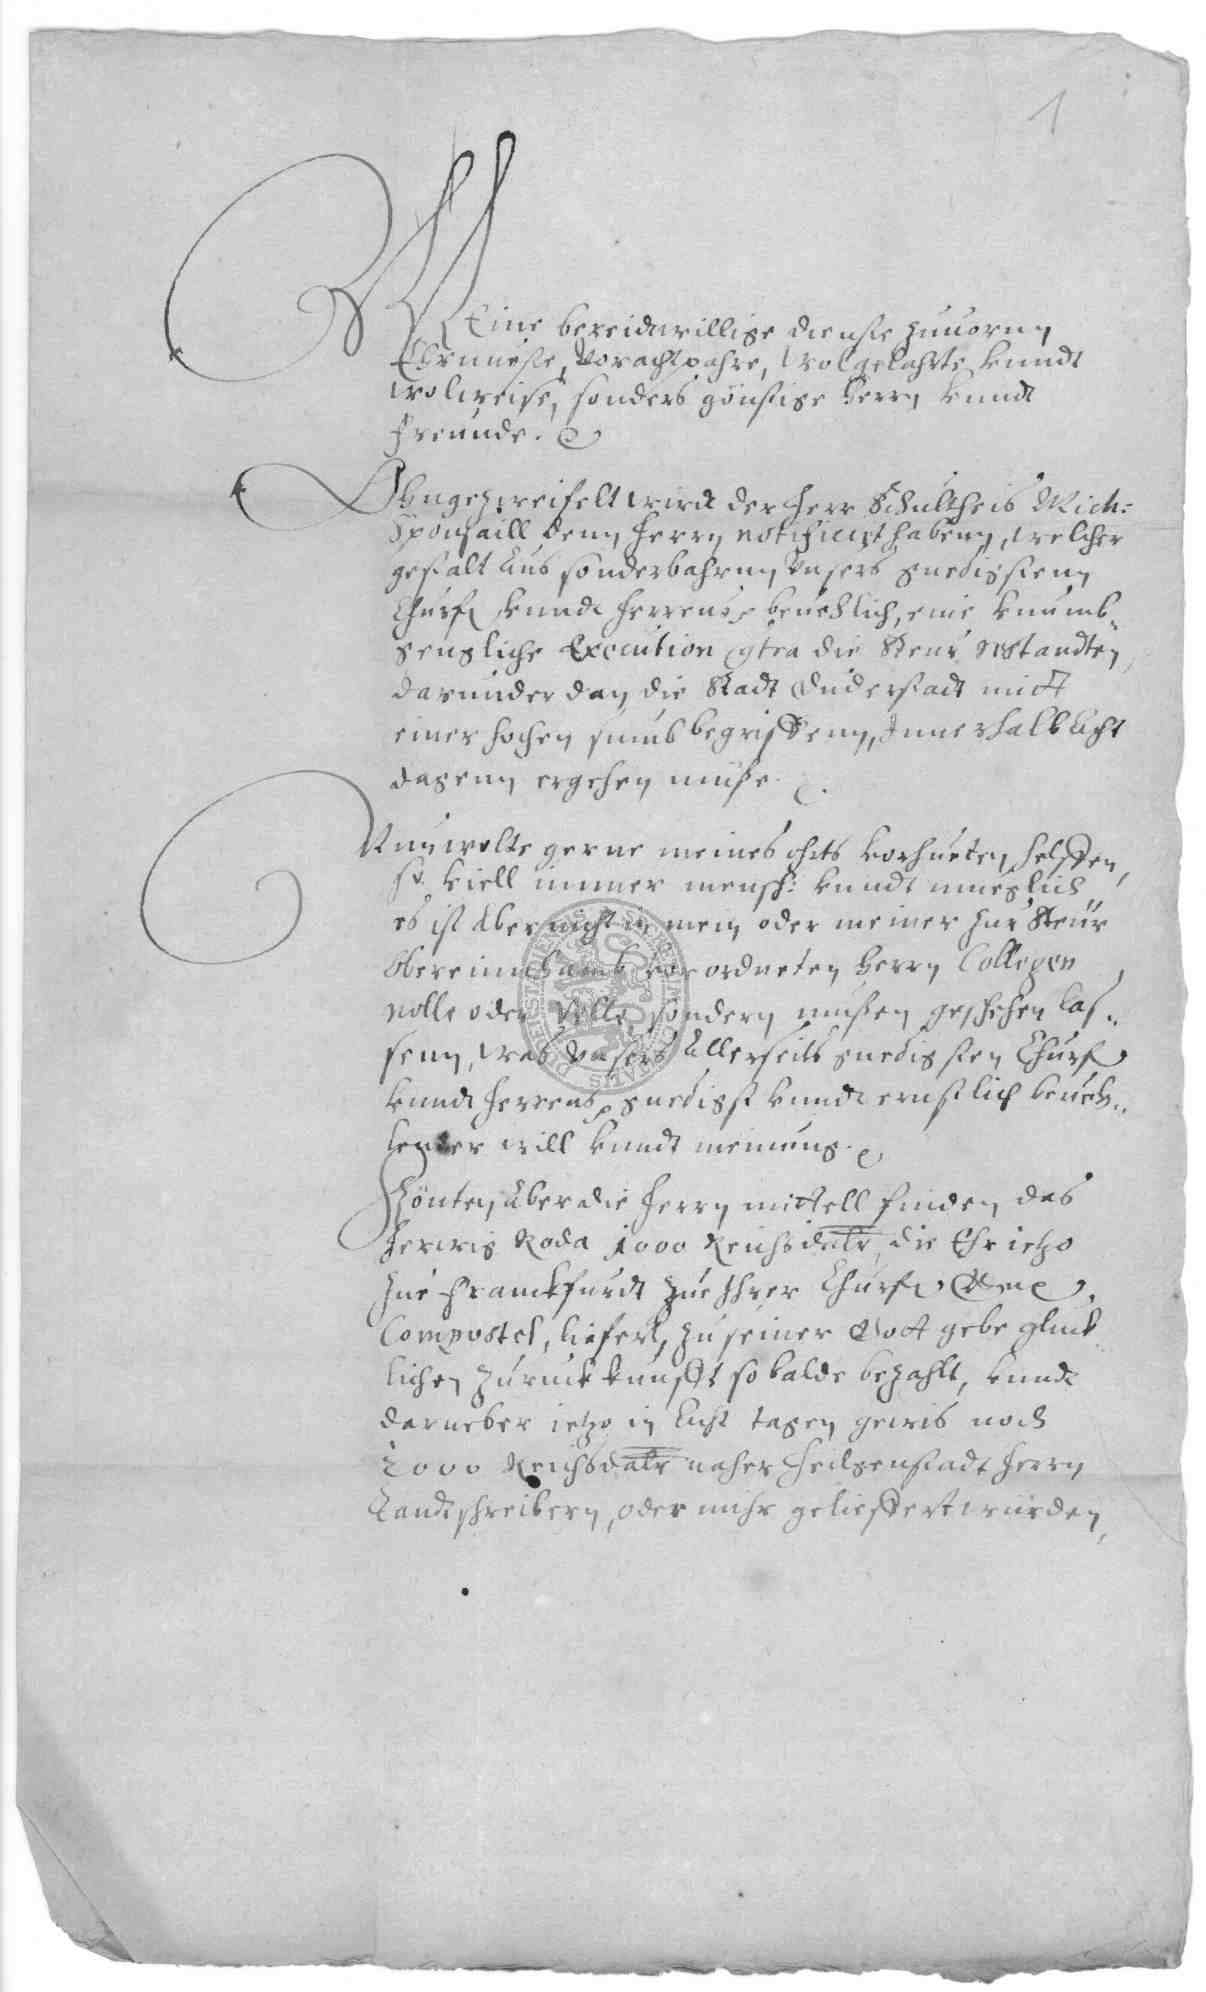 1
Meine bereidtwillige dienste zuuorn,
Ehrnueste, Vorachtpahre, wolgelahrte vnndt
wolweise, sonders günstige Herrn vnndt
Freunde.
Ohngezweifelt wirdt der Herr Schultheis Mich:
denn Herrn notificirt habenn, welcher
gestalt aus sonderbahrenn vnsers gnedigstenn
Churf. vnndt Herrens beuehlich, eine vnumb„
gengliche Execution contra die Steur restandten,
darunder dan die Stadt Duderstadt mitt
einer hochen summ begriffenn, Innerhalb acht
dagenn ergehen müße.
Nun wolte gerne meines ohrts verhueten helffen,
so viell immer mensch: vnndt mueglich
es ist aber nicht in mein oder meiner zur Steur
Obereinnahmb verordneten Herrn Collegen
nolle oder velle, sondern müßen geschehen las„
senn, was vnsers allerseits gnedigsten Churf.
vnndt Herrens gnedigst vnndt ernstlich beueh„
lender will vnndt meinung.
Könten aber die Herrn mittell finden, das
Herwig Roda 1000 Reichsdalr, die Ehr ietzo
zue Franckfurdt zue Ihrer Churf.
liefert, zu seiner Gott gebe glück
lichen zurückkunfft so balde bezahlt, vnndt
darneber ietzo in acht tagen gewis noch
2000 Reichsdalr naher Heiligenstadt Herrn
Landtschreibern, oder mihr geliefert würden,